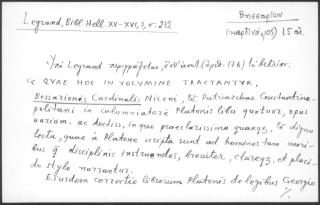 Legrand, Bibl. Hell. XV-XVI, 3, σ. 212
Βησσαρίων
15 αἰ.
Legrand περιγράφεται, (176)
« QUAE HOC IN VOLUMINE TRACTANTUR.
Bessarionis Cardinalis Niceni, & Patriarchae Constantino-
politani in calumniatorē Platonis libri quatuor, opus
varium, ac doctiss, in quo praeclarissima quaeq, & digna
lectu, quae à Platone scripta sunt ad homines tam mori-
bus q̄ disciplinis instruendos, breviter, clareq, et placi-
do stylo narrantur.
Eiusdem correctio librorum Platonis de legibus Georgio
./.